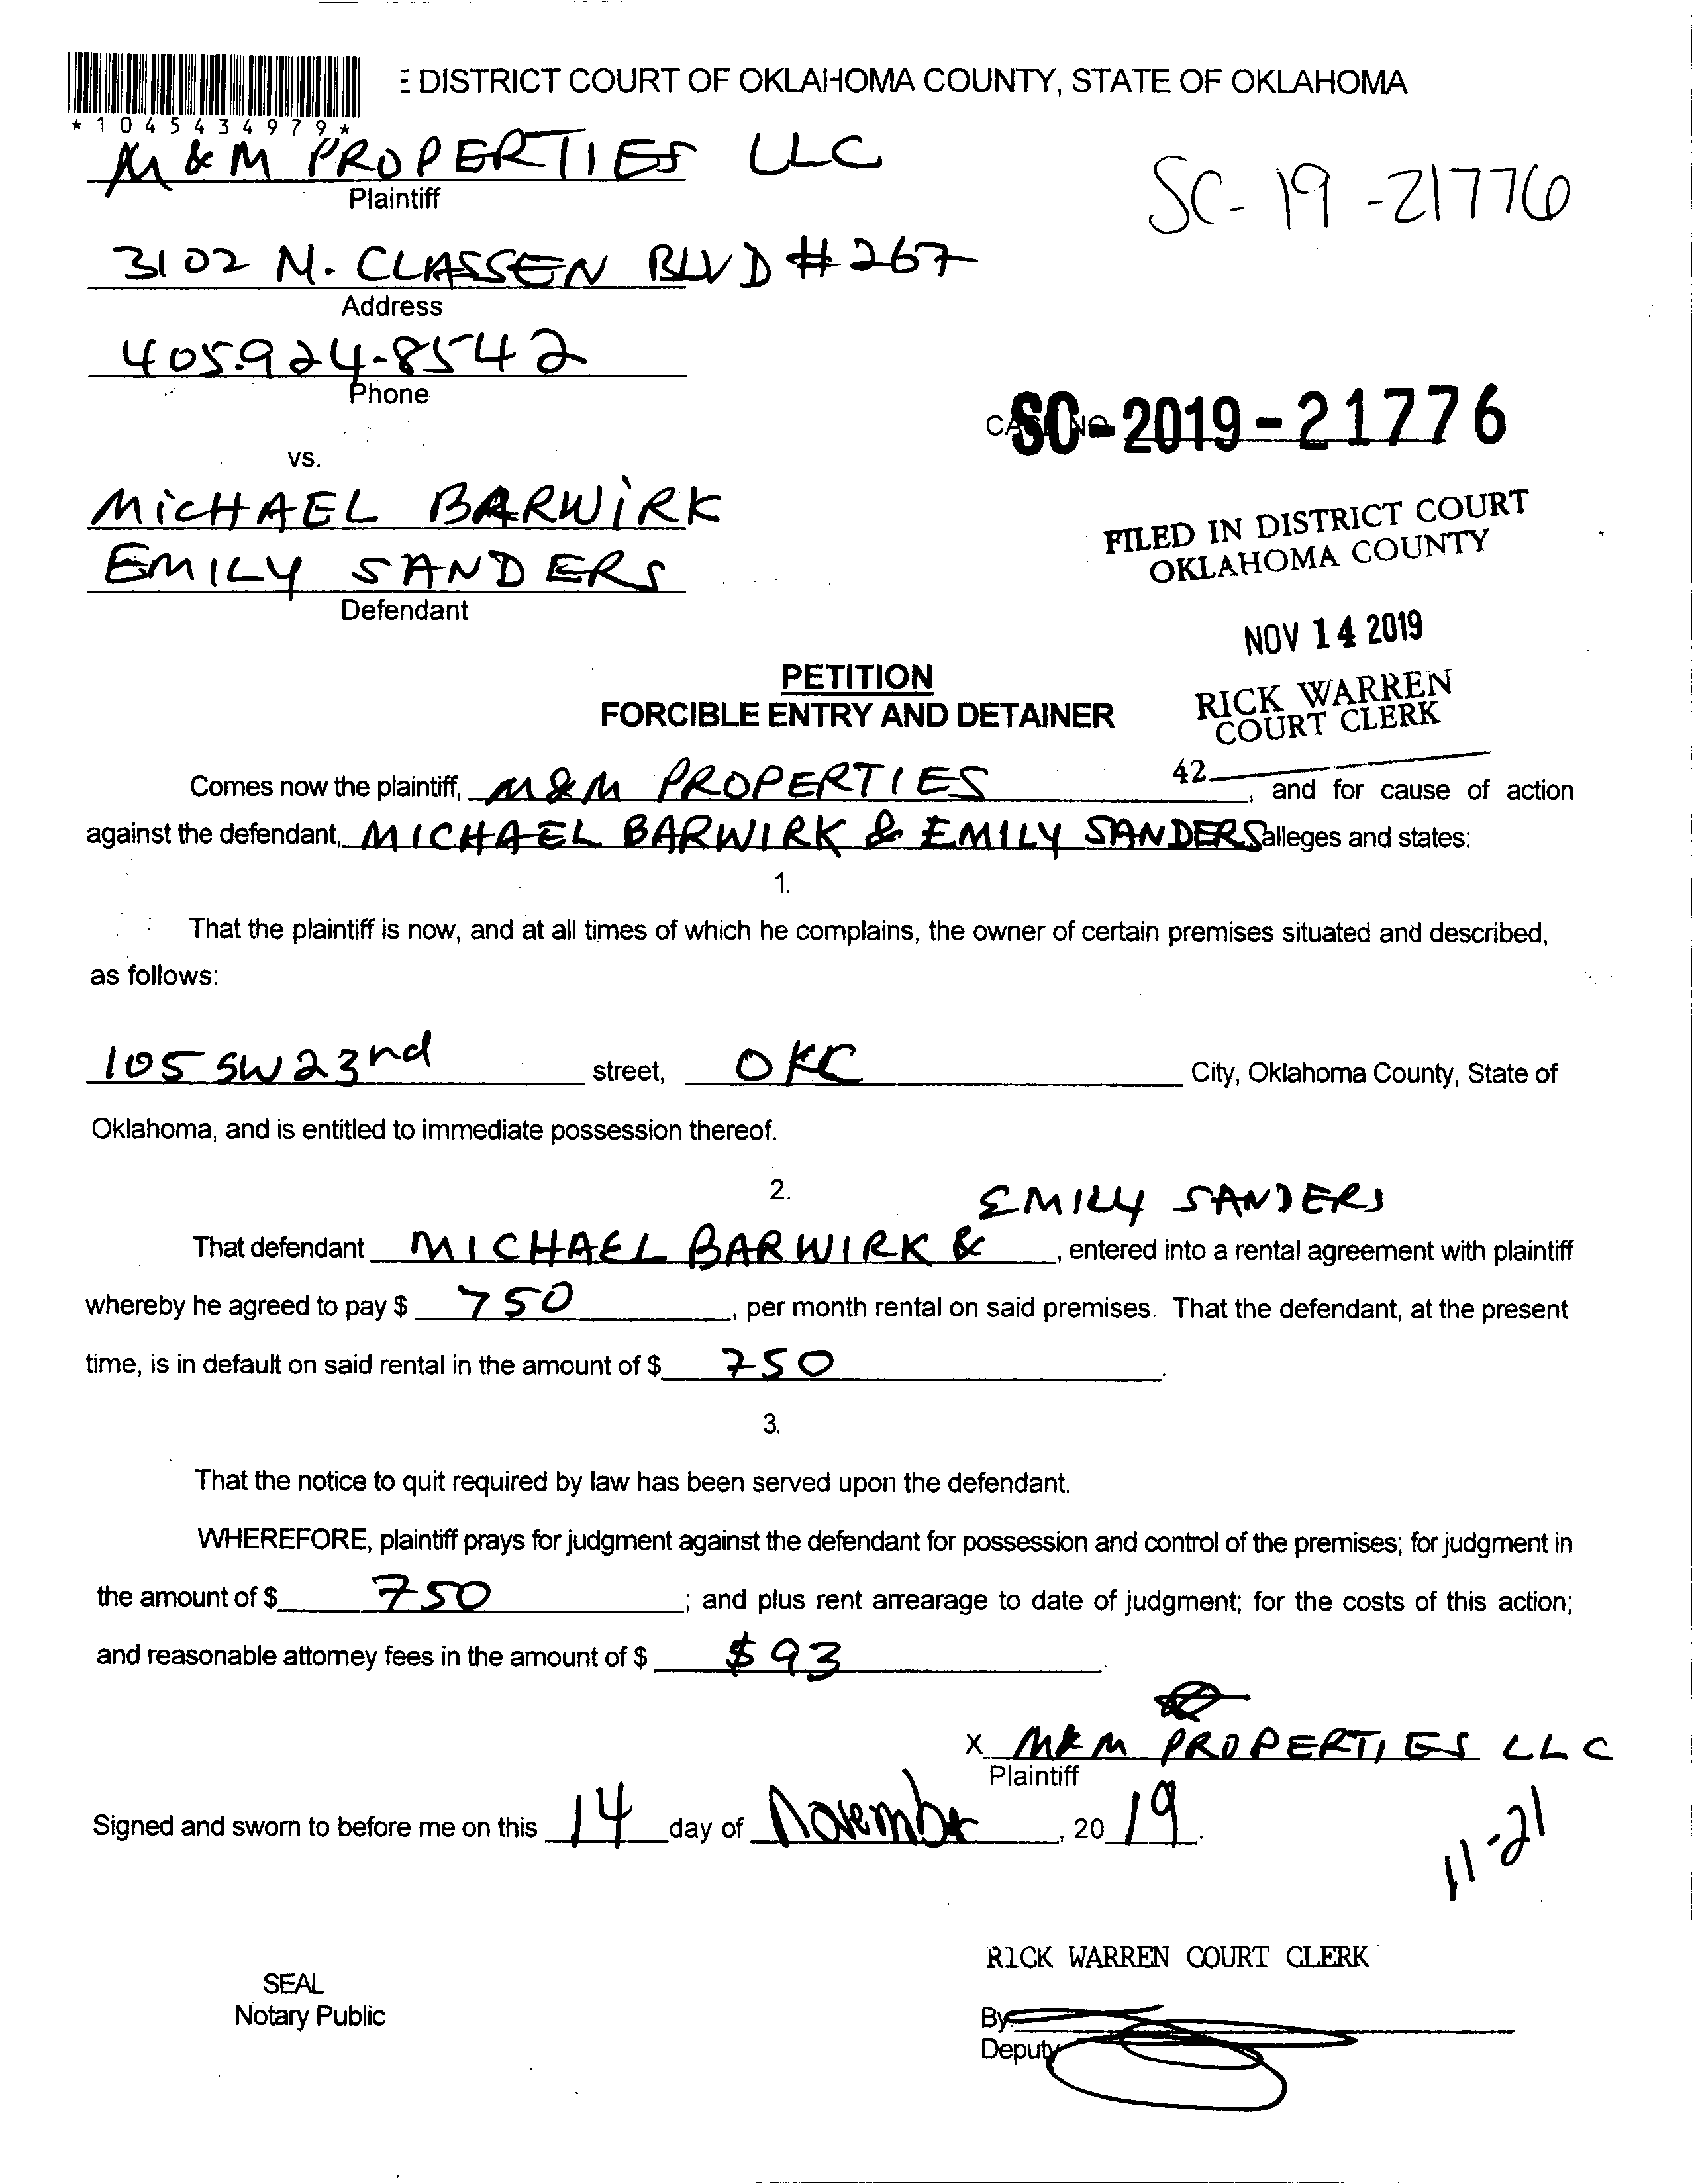 E DISTRICT COURT OF OKLAHOMA COUNTY, STATE OF OKLAHOMA
*1045434979*
M & M PROPERTIES LLC
Plaintiff
SC-19-21776
3102 N. CLASSEN BLVD #267
Address
405.924-8542
Phone
SC-2019-21776
vs.
MICHAEL BARWIRK
EMILY SANDERS
Defendant
FILED IN DISTRICT COURT
OKLAHOMA COUNTY
NOV 14 2019
RICK WARREN
COURT CLERK
42
PETITION
FORCIBLE ENTRY AND DETAINER
Comes now the plaintiff, M&M PROPERTIES, and for cause of action
against the defendant, MICHAEL BARWIRK & EMILY SANDERS alleges and states:
1.
That the plaintiff is now, and at all times of which he complains, the owner of certain premises situated and described,
as follows:
105 SW 23nd street, OKC City, Oklahoma County, State of
Oklahoma, and is entitled to immediate possession thereof.
2.
EMILY SANDERS
That defendant MICHAEL BARWIRK & , entered into a rental agreement with plaintiff
whereby he agreed to pay $ 750, per month rental on said premises. That the defendant, at the present
time, is in default on said rental in the amount of $ 750.
3.
That the notice to quit required by law has been served upon the defendant.
WHEREFORE, plaintiff prays for judgment against the defendant for possession and control of the premises; for judgment in
the amount of $ 750; and plus rent arrearage to date of judgment; for the costs of this action;
and reasonable attorney fees in the amount of $ $93.
X M&M PROPERTIES LLC
Plaintiff
Signed and sworn to before me on this 14 day of November, 2019.
11-21
RICK WARREN COURT CLERK
SEAL
Notary Public
By:
Deputy